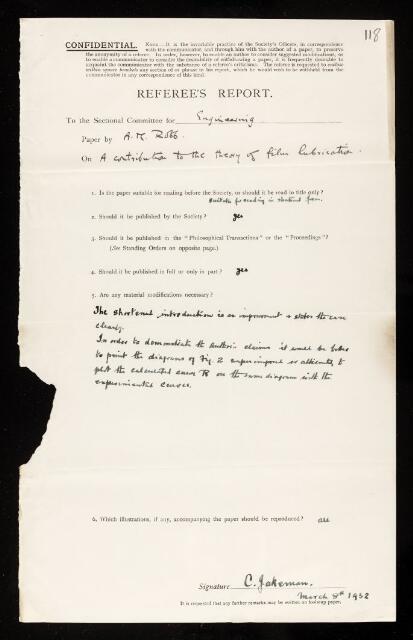 118
CONFIDENTIAL. NOTE.—It is the invariable practice of the Society's Officers, in correspondence
with the communicator, and through him with the author of a paper, to preserve
the anonymity of a referee. In order, however, to enable an author to consider suggested modifications, or
to enable a communicator to consider the desirability of withdrawing a paper, it is frequently desirable to
acquaint the communicator with the substance of a referee's criticisms. The referee is requested to enclose
within square brackets any section of or phrase in his report, which he would wish to be withheld from the
communicator in any correspondence of this kind.
REFEREE'S REPORT.
To the Sectional Committee for Engineering
Paper by A. M. Robb
On A contribution to the theory of film lubrication
1. Is the paper suitable for reading before the Society, or should it be read in title only?
Suitable for reading in shortened form.
2. Should it be published by the Society? yes
3. Should it be published in the "Philosophical Transactions" or the "Proceedings"?
(See Standing Orders on opposite page.)
4. Should it be published in full or only in part? yes
5. Are any material modifications necessary?
The shortened introduction is an improvement & states the case
clearly.
In order to demonstrate the author's claims it would be better
to print the diagrams of Fig. 2 superimposed or alternately to
plot the calculated curve B on the same diagram with the
experimental curves.
6. Which illustrations, if any, accompanying the paper should be reproduced? all
Signature C. Jakeman.
March 8th 1932
It is requested that any further remarks may be written on foolscap paper.